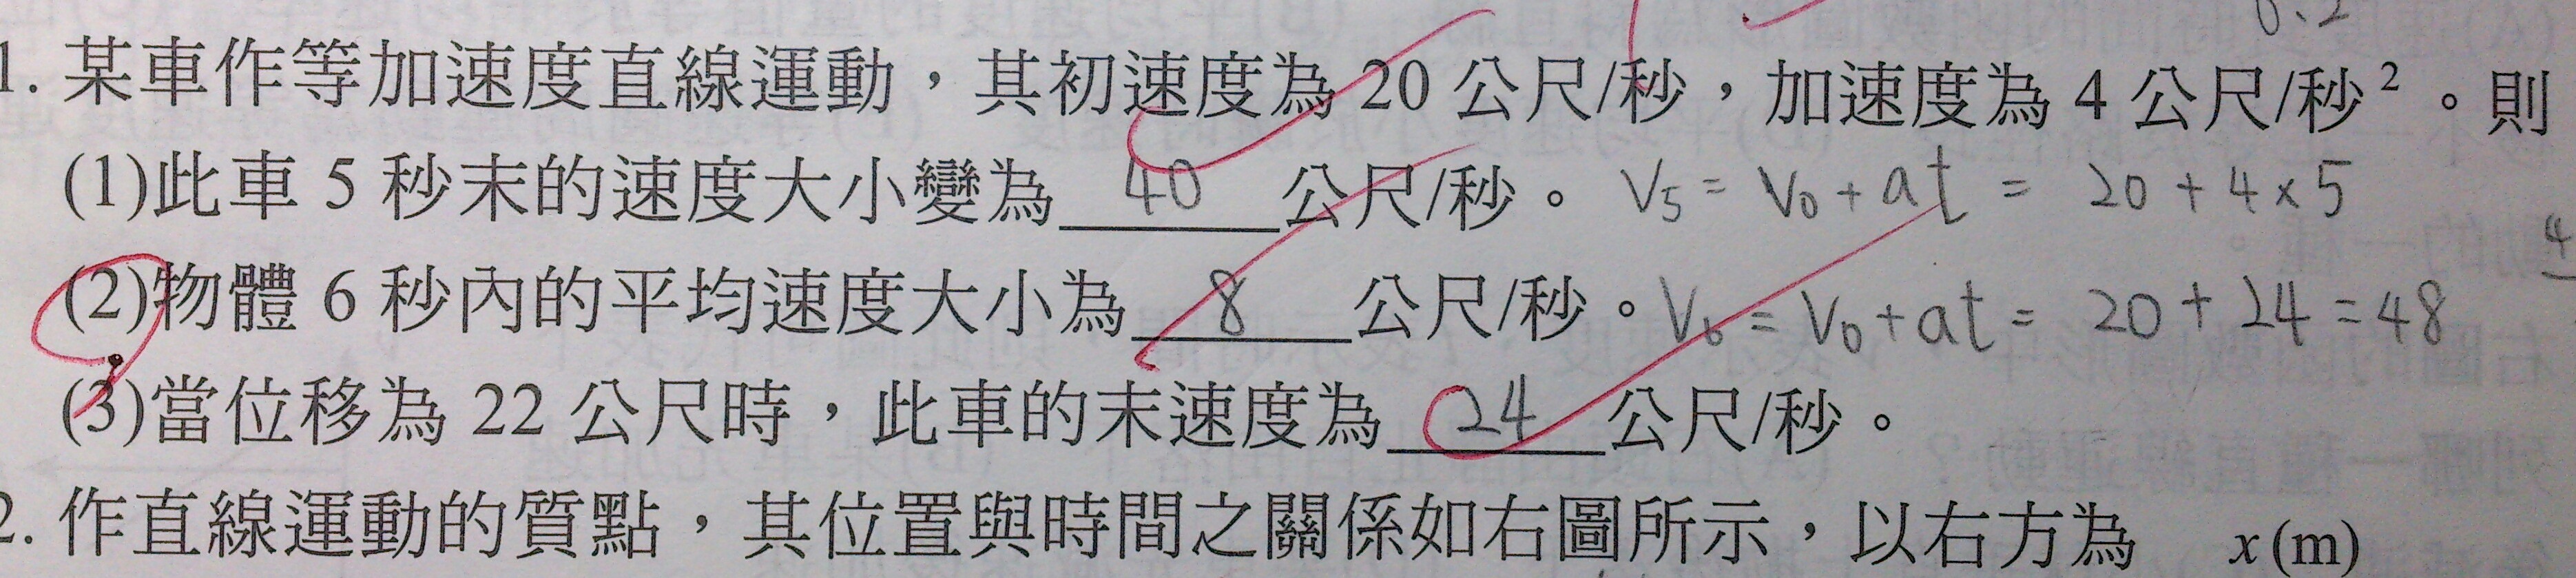 0.2
1. 某車作等加速度直線運動，其初速度為 20 公尺/秒，加速度為 4 公尺/秒²。則
(1)此車 5 秒末的速度大小變為 40 公尺/秒。 V₅ = V₀ + at = 20 + 4 × 5
(2)物體 6 秒內的平均速度大小為 8 公尺/秒。 V₆ = V₀ + at = 20 + 24 = 48
4
(3)當位移為 22 公尺時，此車的末速度為 24 公尺/秒。
2. 作直線運動的質點，其位置與時間之關係如右圖所示，以右方為 x (m)